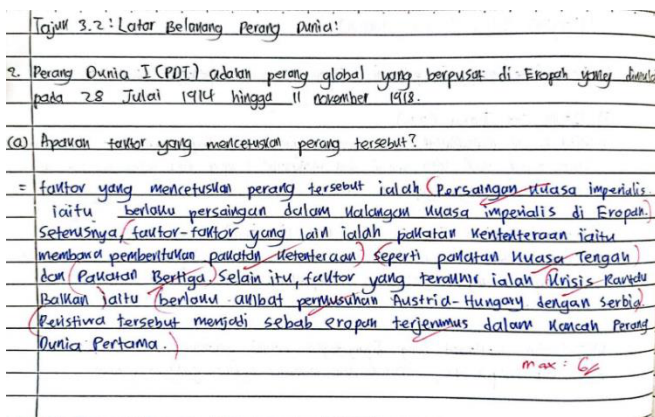 Tajuk 3.2: Latar Belakang Perang Dunia:
2. Perang Dunia I (PDI) adalah perang global yang berpusat di Eropah yang
pada 28 Julai 1914 hingga 11 november 1918.
(a) Apakah faktor yang mencetuskan perang tersebut?
= faktor yang mencetuskan perang tersebut ialah (Persaingan kuasa imperialis
iaitu berlaku persaingan dalam kalangan kuasa imperialis di Eropah.)
Seterusnya, (faktor-faktor yang lain ialah pakatan kententeraan iaitu
membawa pembentukan pakatan ketenteraan) seperti pakatan kuasa Tengah)
dan (Pakatan Bertiga.) Selain itu, faktor yang terakhir ialah (Krisis Rantau
Balkan iaitu (berlaku akibat permusuhan Austria-Hungary dengan Serbia.)
(Peristiwa tersebut menjadi sebab eropah terjerumus dalam kancah Perang
Dunia Pertama.)
max: 6